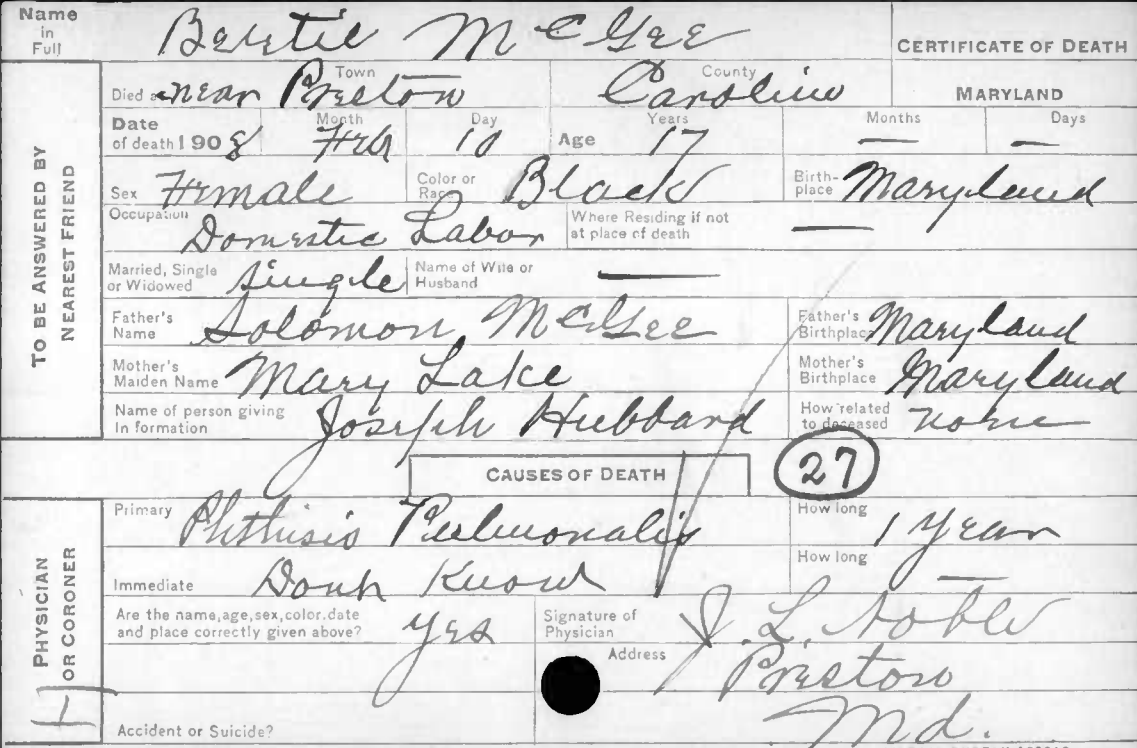 Name in Full Bertie McGee
CERTIFICATE OF DEATH
TO BE ANSWERED BY NEAREST FRIEND
Died at near Preston Town Caroline County MARYLAND
Date of death 1908 Month Feb Day 10 Age Years 17 Months — Days —
Sex Female Color or Race Black Birth-place Maryland
Occupation Domestic Labor Where Residing if not at place of death —
Married, Single or Widowed Single Name of Wife or Husband —
Father's Name Solomon McGee Father's Birthplace Maryland
Mother's Maiden Name Mary Lake Mother's Birthplace Maryland
Name of person giving In formation Joseph Hubbard How related to deceased None
CAUSES OF DEATH 27
PHYSICIAN OR CORONER
Primary Phthisis Pulmonalis How long 1 Year
Immediate Dont Know How long —
Are the name, age, sex, color, date and place correctly given above? Yes Signature of Physician J. L. Noble
Address Preston
Md.
Accident or Suicide?